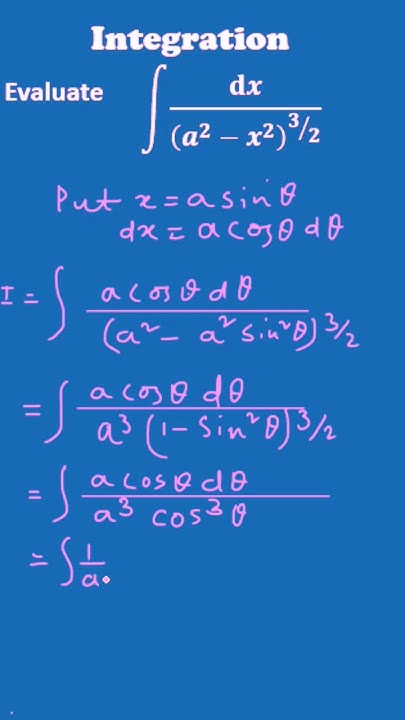 Integration
Evaluate ∫ dx / (a² − x²)^3/2
Put x = a sin θ
dx = a cos θ d θ
I = ∫ a cos θ d θ / (a² − a² sin² θ)^3/2
= ∫ a cos θ d θ / a³ (1 − sin² θ)^3/2
= ∫ a cos θ d θ / a³ cos³ θ
= ∫ 1 / a